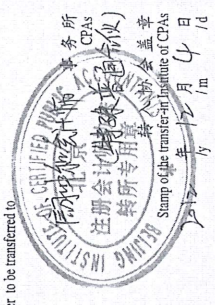 er to be transferred to
事务所
CPAs
BEIJING INSTITUTE OF CERTIFIED PUBLIC AC
北京
注册会计师
转所专用章
(特殊普通合伙)
转入协会盖章
Stamp of the transfer-in Institute of CPAs
2012 年 12 月 4 日
/y /m /d